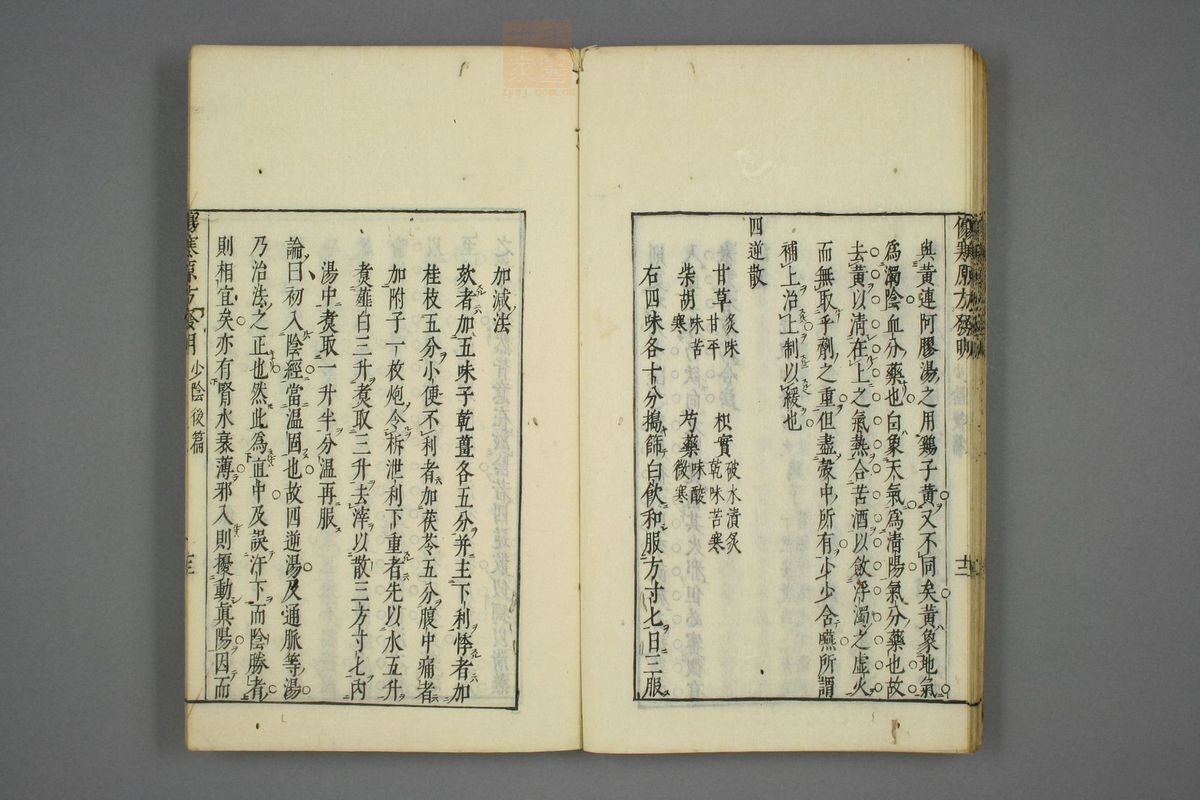 傷寒原方發明
十二
與黃連阿膠湯之用鷄子黃又不同矣黃象地氣
爲濁陰血分藥也白象天氣爲清陽氣分藥也故
去黃以清在上之氣熱合苦酒以斂浮濁之虛火
而無取乎劑之重但盡殼中所有少少含嚥所謂
補上治上制以緩也
四逆散
甘草炙味甘平 枳實破水漬炙乾味苦寒
柴胡味苦寒 芍藥味酸微寒
右四味各十分搗篩白飲和服方寸匕日三服
加減法
欬者加五味子乾薑各五分并主下利悸者加
桂枝五分小便不利者加茯苓五分腹中痛者
加附子一枚炮令柝泄利下重者先以水五升
煑薤白三升煑取三升去滓以散三方寸匕內
湯中煑取一升半分溫再服
論曰初入陰經當溫固也故四逆湯及通脈等湯
乃治法之正也然此爲直中及誤汗下而陰勝者
則相宜矣亦有腎水衰薄邪入則擾動眞陽因而
傷寒原方發明
少陰後篇
十三
zysj.com.cn